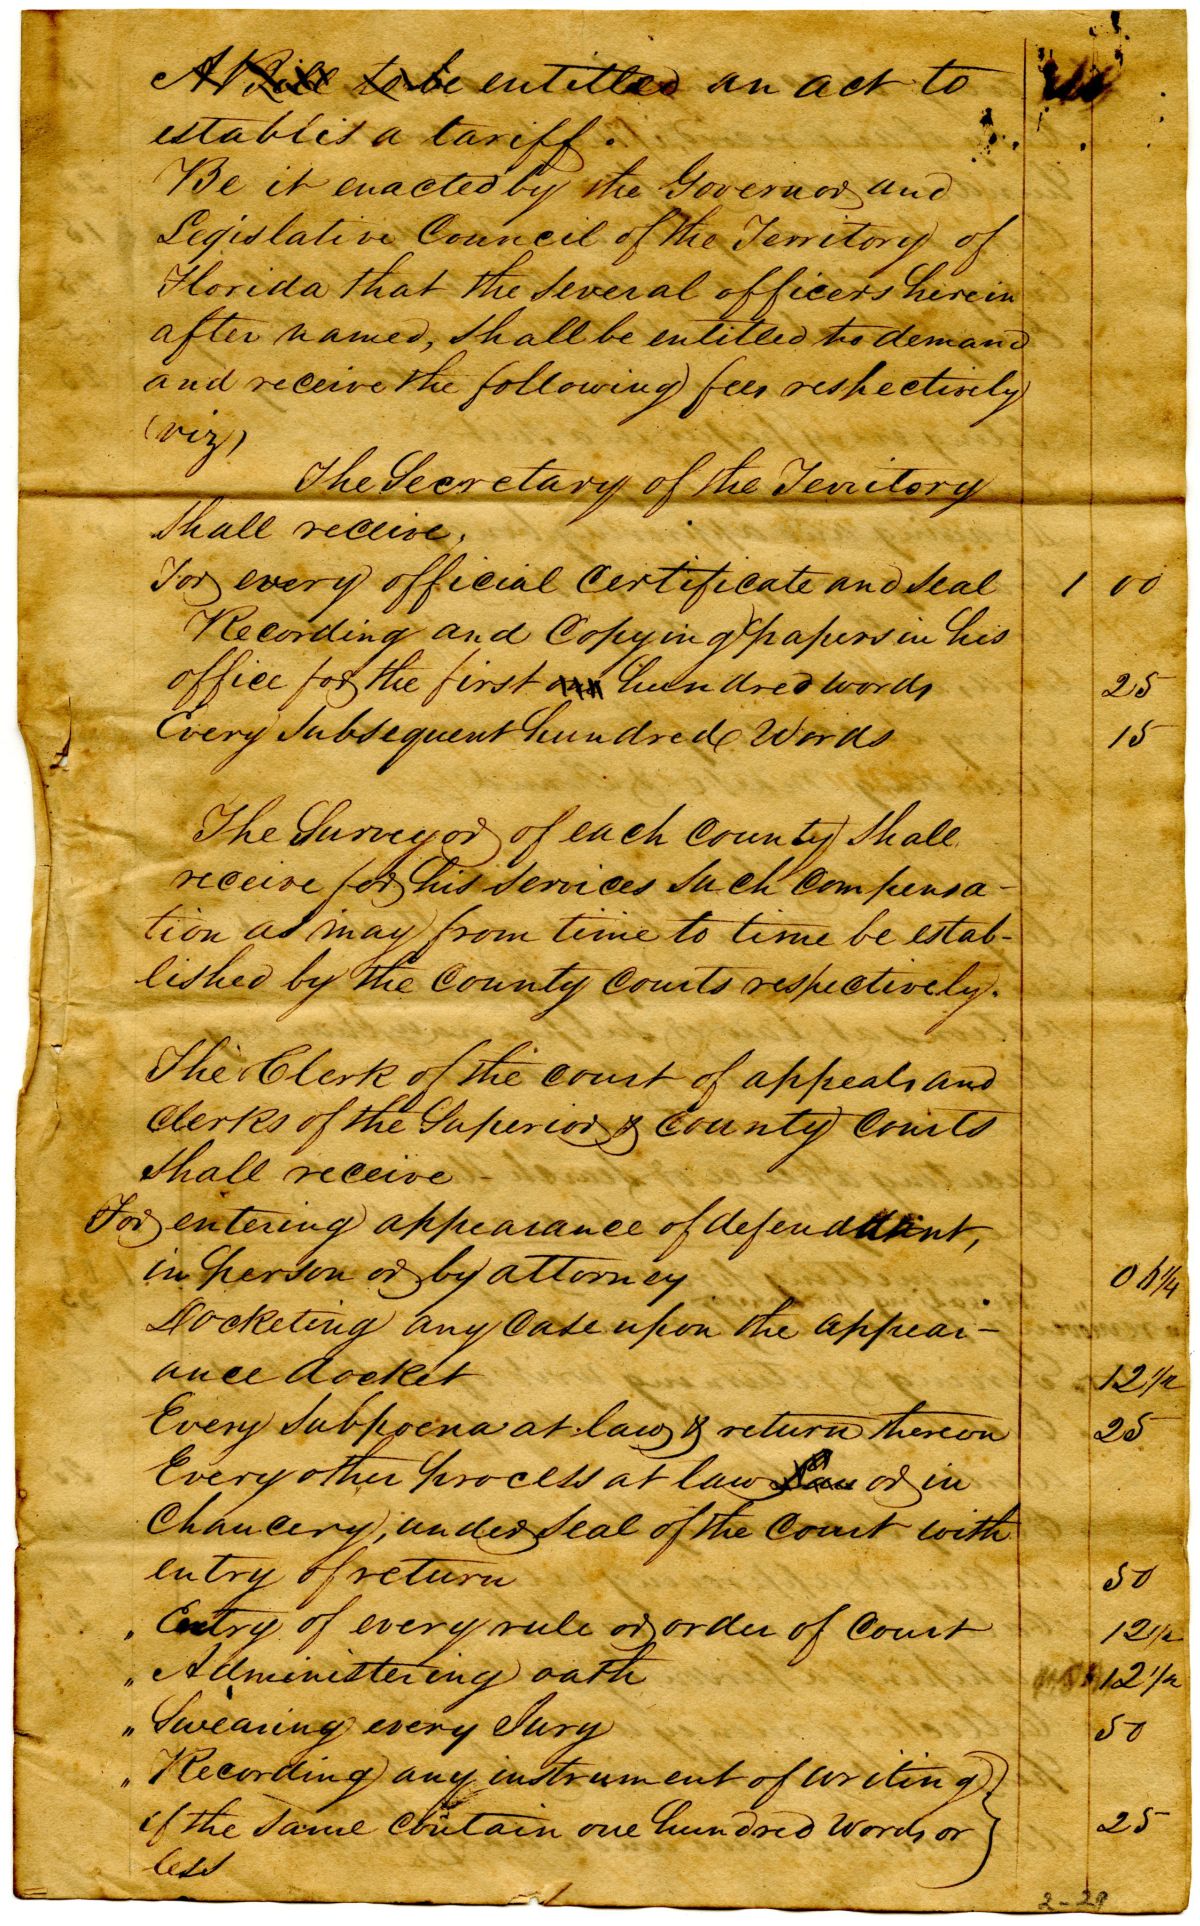 A Bill to be entitled an act to
establis a tariff.
Be it enacted by the Governor and
Legislative Council of the Territory of
Florida that the several officers herein
after named, shall be entitled to demand
and receive the following fees respectively
(viz)
The Secretary of the Territory
shall receive,
For every official Certificate and Seal 1 00
Recording and Copying papers in his
office for the first hundred words 25
Every Subsequent hundred Words 15
The Surveyor of each County shall
receive for his services such compensa-
tion as may from time to time be estab-
lished by the County Courts respectively.
The Clerk of the court of appeals and
Clerks of the Superior & County Courts
shall receive -
For entering appearance of defendant,
in person or by attorney 06¼
Docketing any Case upon the appear-
ance docket 12½
Every Subpoena at law & return thereon 25
Every other process at law or in
Chancery, under Seal of the Court with
entry of return 50
" Entry of every rule or order of Court 12½
" Administering oath 12½
" Swearing every Jury 50
" Recording any instrument of writing
if the same contain one hundred words or 25
less
2-29